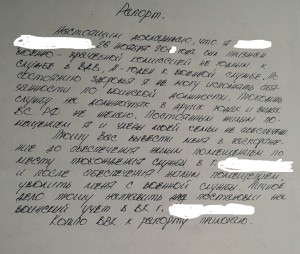 Рапорт.
Настоящим докладываю, что я
26 ноября 20 года был признан
военно-врачебной комиссией не годным к
службе в ВДВ, годен к военной службе. По
состоянию здоровья я не могу исполнять обя-
занности по воинской должности. Проходить
службу на должностях в других родах и видах
ВС РФ не желаю. Постоянным жилым по-
мещением я и члены моей семьи не обеспечены
Прошу Вас вывести меня в распоряже-
ние до обеспечения жилым помещением по
месту прохождения службы в г.
и после обеспечения жилым помещением,
уволить меня с военной службы. Личное
дело прошу направить для постановки на
воинский учет в ВК г.
Копию ВВК к рапорту прилагаю.